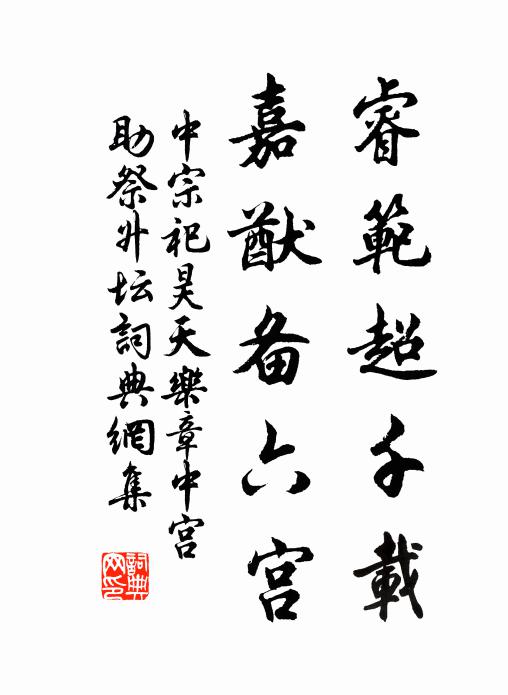 睿範超千載
嘉猷备六宫
中宗祀昊天樂章中宫
助祭升坛詞典網集
詞典网印